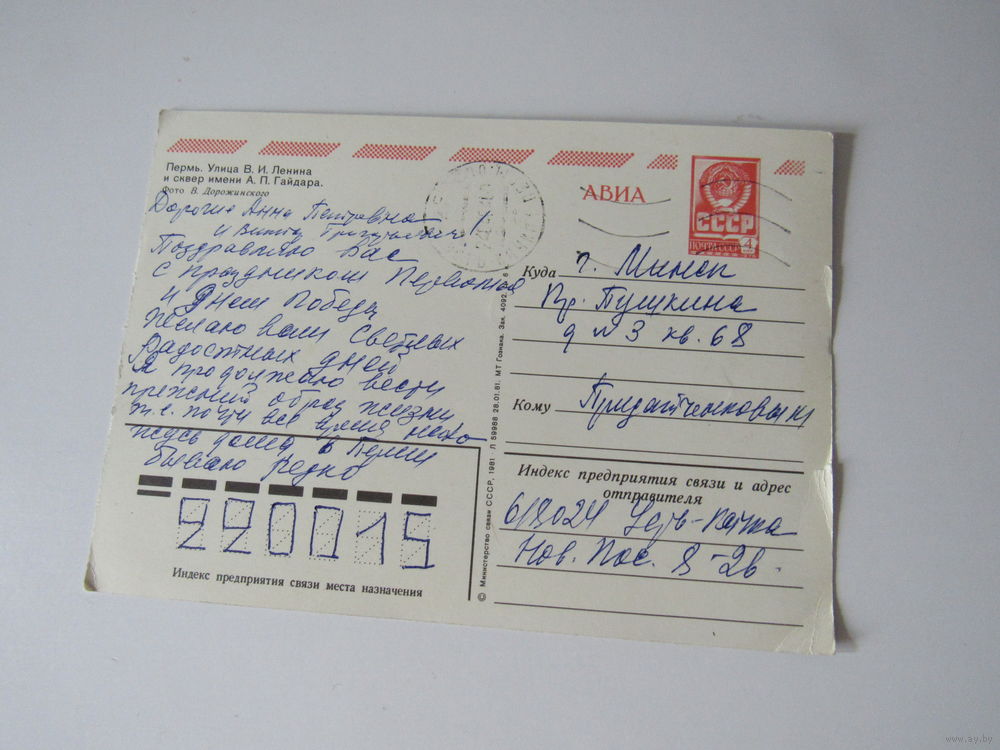 Пермь. Улица В. И. Ленина
и сквер имени А. П. Гайдара.
Фото В. Дорожинского
Дорогие Анна Петровна
и
Поздравляю Вас
с праздником Первомая
и Днем Победы
Желаю вам Светлых
Радостных дней
Я продолжаю вести
прежний образ жизни
т.е. почти все время нахо
жусь дома в Перми
бываю редко
220015
Индекс предприятия связи места назначения
© Министерство связи СССР, 1981 · Л 59988 28.01.81. МТ Гознака. Зак. 4092.
АВИА
СССР
ПОЧТА СССР 4
Куда г. Минск
Пр. Пушкина
д № 3 кв. 68
Кому
Индекс предприятия связи и адрес
отправителя
618024 Усть-Качка
Нов. Пос. 8-26
www.ay.by